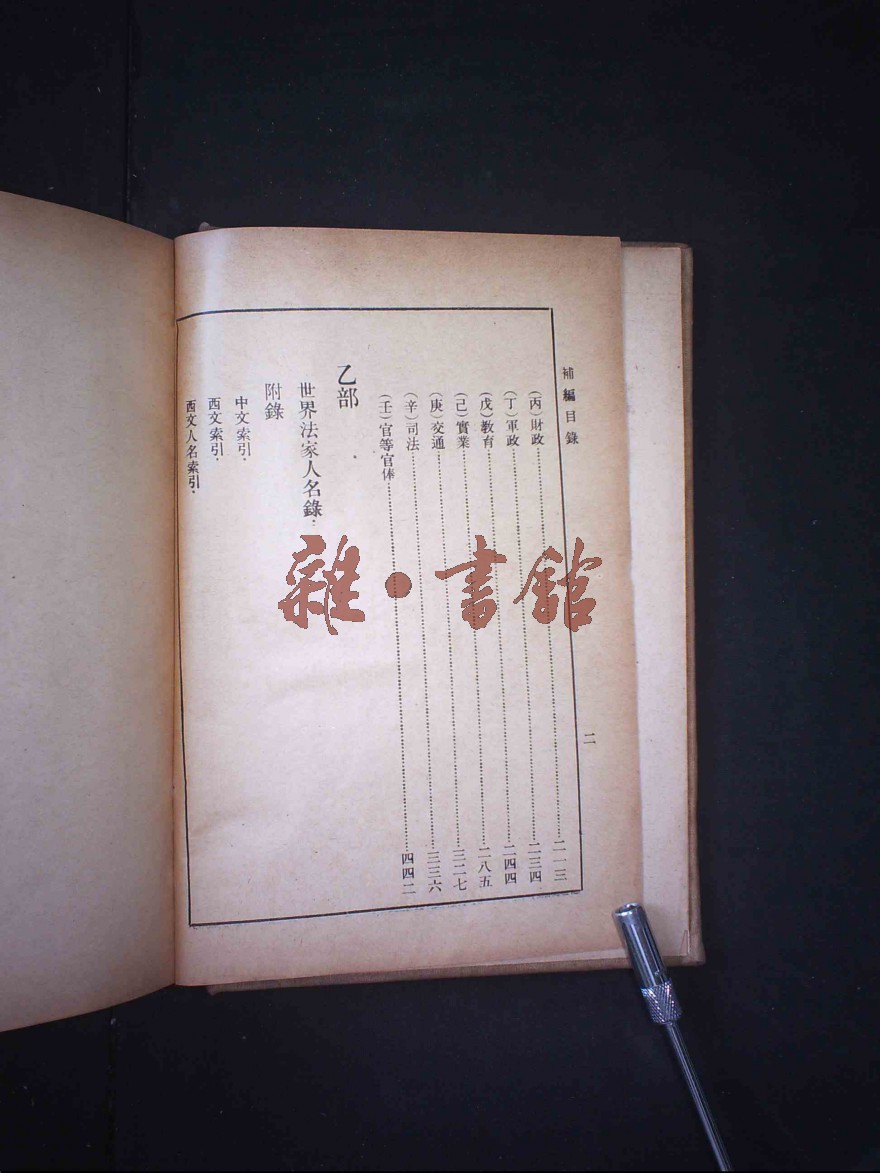 補編目錄 二
(丙)財政……二一三
(丁)軍政……二三四
(戊)教育……二四四
(己)實業……二八五
(庚)交通……三二七
(辛)司法……三三六
(壬)官等官俸……四四二
乙部
世界法家人名錄·
附錄
中文索引·
西文索引·
西文人名索引·
雜·書館